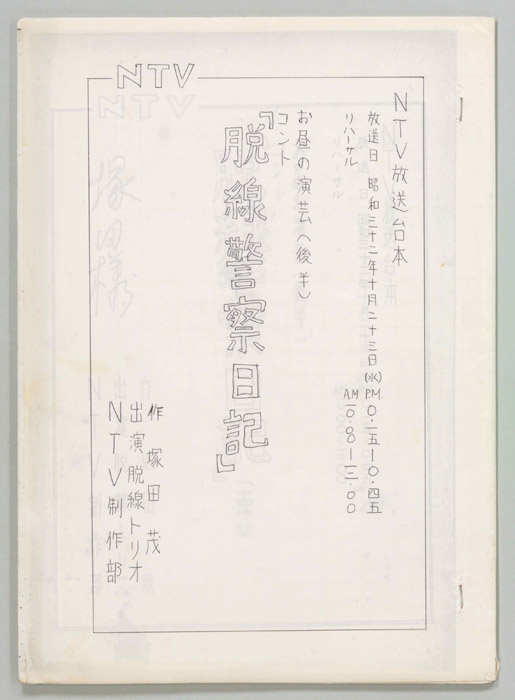 NTV
NTV放送台本
放送日 昭和三十二年十月二十三日(水)P.M.0.二五ー0.四五
リハーサル A.M.一0.
お昼の演芸(後半)
コント
『脱線警察日記』
作 塚田 茂
出演脱線トリオ
NTV制作部
塚田様